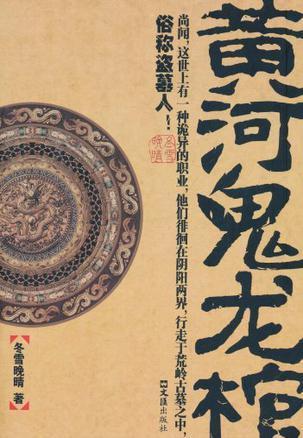 黄河鬼龙棺
尚闻，这世上有一种诡异的职业，他们徘徊在阴阳两界，行走于荒岭古墓之中，
俗称盗墓人！
冬雪
晚晴
冬雪晚晴 著
文汇出版社